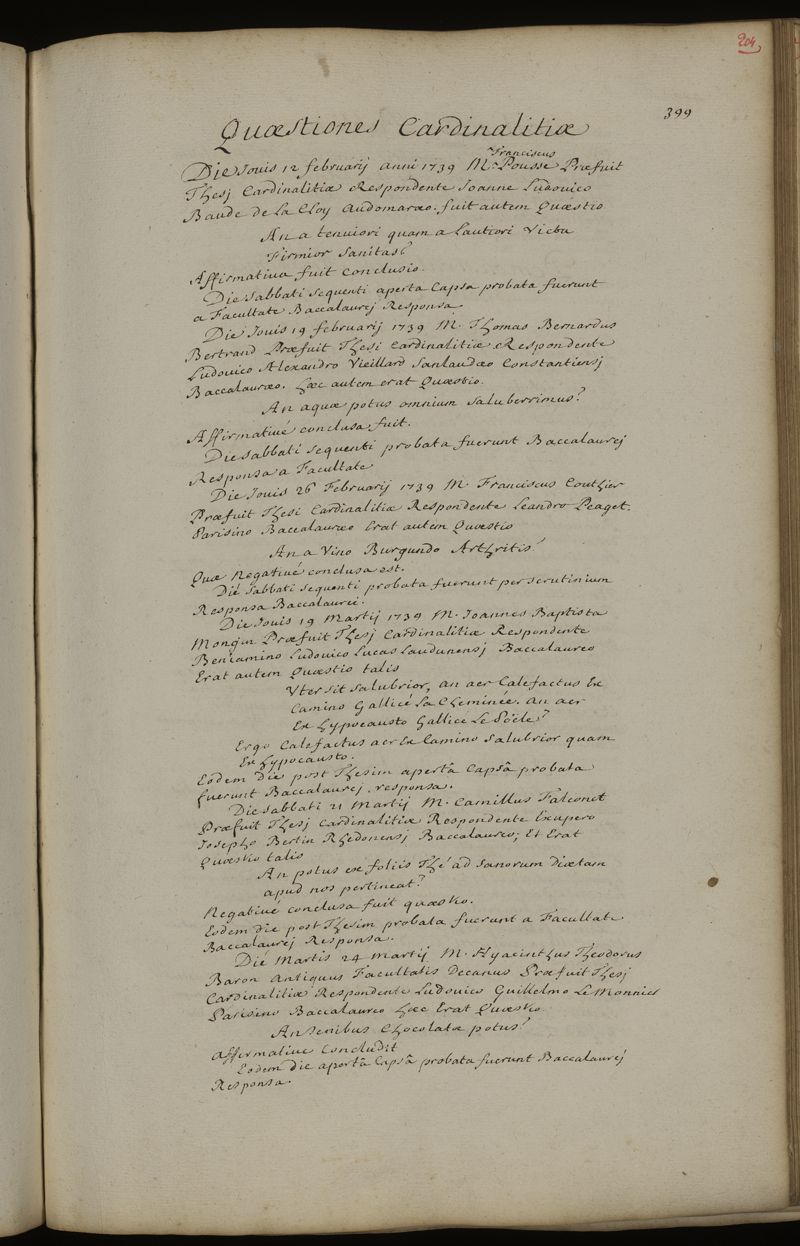 204
399
Quæstiones Cardinalitiæ
Franciscus
Die Jovis 12 februarij anni 1739 Mr Pousse Præfuit
Thesj Cardinalitiæ Respondente Joanne Ludovico
Baude de La Cloy Audomaræo. fuit autem Quæstio
An a tenuiori quam a Lautiori Victu
Firmior Sanitas?
Affirmativa fuit Conclusio.
Die Sabbati sequenti aperta Capsa probata fuerunt
a Facultate Baccalaurej Responsa.
Die Jovis 19 februarij 1739 M. Thomas Bernardus
Bertrand Præfuit Thesi Cardinalitiæ Respondente
Ludovico Alexandro Vieillard Sanlaudæo Constantiensj
Baccalauræo. hæc autem erat Quæstio.
An aquæ potus omnium Saluberrimus?
Affirmativé conclusa fuit.
Die Sabbati sequenti probata fuerunt Baccalaurej
Responsa a Facultate
Die Jovis 26 Februarij 1739 M. Franciscus Couthier
Præfuit Thesi Cardinalitiæ Respondente Leandro Peaget.
Parisino Baccalauræo Erat autem Quæstio
An a Vino Burgundo Arthritis?
Quæ Negativé conclusa est.
Dié Sabbati sequenti probata fuerunt per scrutinium
Responsa Baccalaurei.
Die Jovis 19 Martij 1739 M. Joannes Baptista
Monqin Præfuit Thesj Cardinalitiæ Respondente
Beniamino Ludovico Lucas Laudunensj Baccalaureo
Erat autem Quæstio talis
Vter sit salubrior, an aer Calefactus Ex
Camino Gallicé La Cheminée. An aer
Ex hypocausto Gallice Le Pöele?
Ergo Calefactus aer Ex Camino Salubrior quam
Ex hypocausto.
Eodem Die post Thesim apertâ Capsâ probata
fuerunt Baccalaurej responsa.
Die Sabbati 21 Martij M. Camillus Falconet
Præfuit Thesj Cardinalitiæ Respondente Exupero
Josepho Bertin Rhedonensj Baccalaureo; Et Erat
Quæstio talis
An potus ex foliis Thé ad Sanorum Diætam
apud nos pertineat?
Negativé conclusa fuit quæstio.
Eodem die post Thesim probata fuerunt a Facultate
Baccalaurej Responsa.
Dié Martis 24 Martij M. Hyacinthus Theodorus
Baron Antiquus Facultatis Decanus Præfuit Thesj
Cardinalitiæ Respondente Ludovico Guillelmo Le Monnier
Parisino Baccalaureo Hæc Erat Quæstio
An senibus Chocolatæ potus?
Affirmative Concludit
Eodem die apertâ Capsâ probata fuerunt Baccalaurej
Responsa.